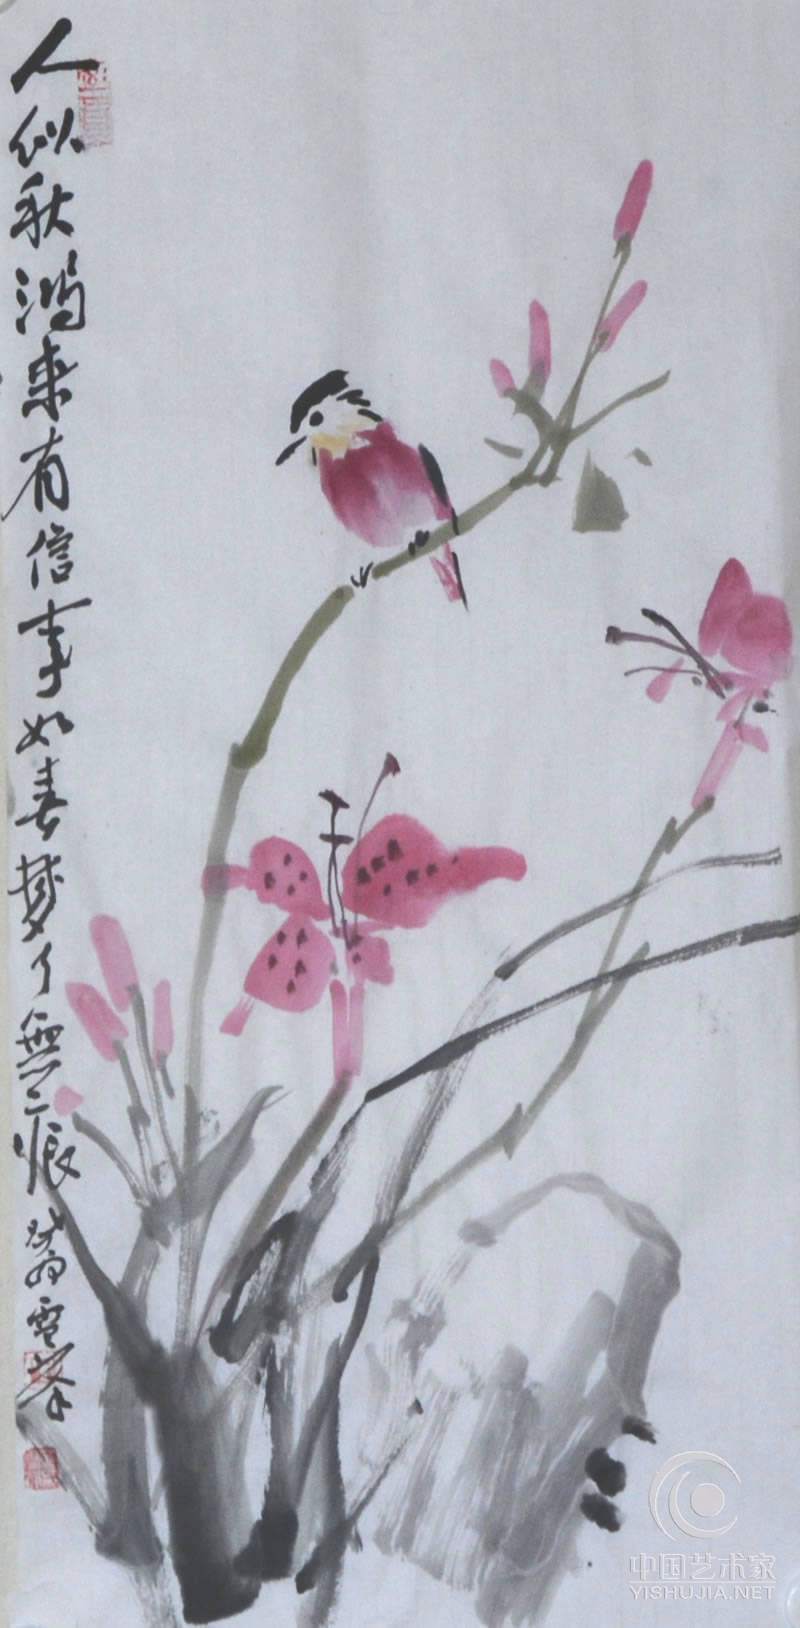 人似秋鸿来有信事如春梦了无痕
雪峰
中国艺术家
YISHUJIA.NET